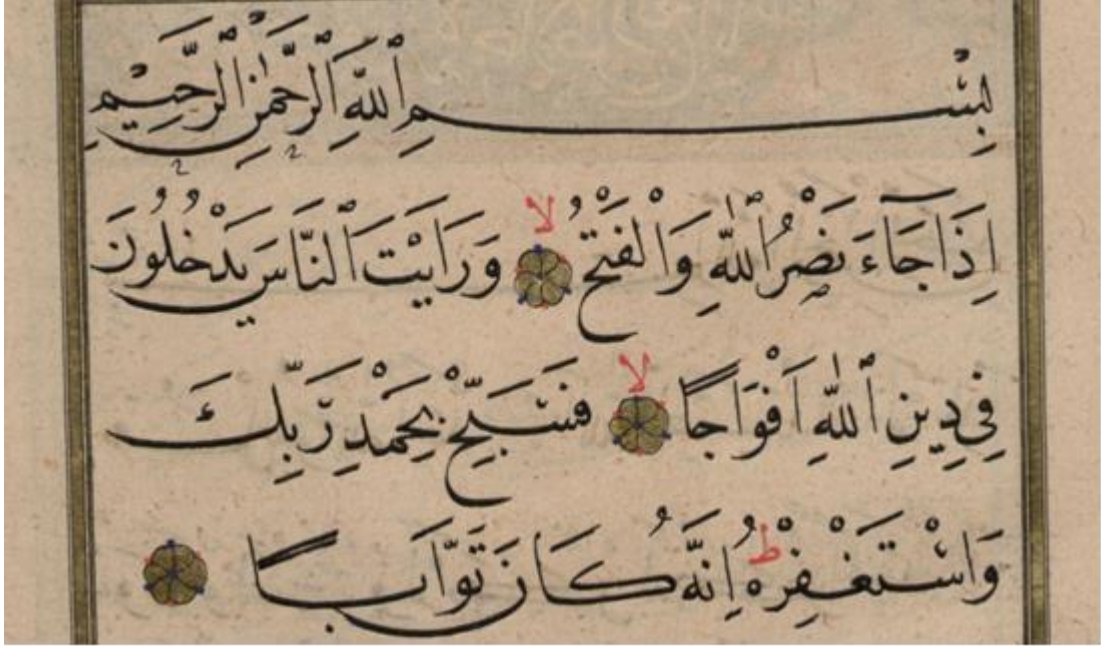 بِسْمِ ٱللَّهِ ٱلرَّحْمٰنِ ٱلرَّحِيْمِ
اِذَا جَآءَ نَصْرُ ٱللّٰهِ وَالْفَتْحُ لا وَرَاَيْتَ ٱلنَّاسَ يَدْخُلُونَ
فِى دِينِ ٱللّٰهِ اَفْوَاجًا لا فَسَبِّحْ بِحَمْدِ رَبِّكَ
وَاسْتَغْفِرْهُ ط اِنَّهُ كَانَ تَوَّابًا